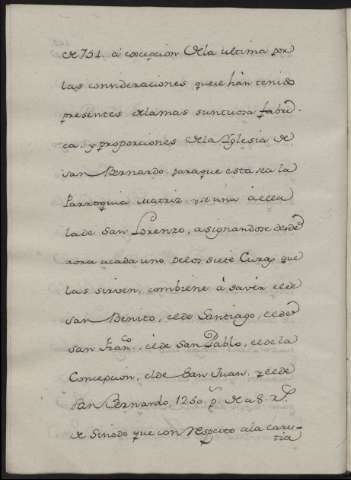 de 751. á excepcion de la ultima por
las consideraciones que se han tenido
presentes de la mas suntuosa fabri-
ca, y proporciones de la Iglesia de
san Bernardo para que esta sea la
Parroquia matriz, y se una á ella
la de san Lorenzo, asignandose desde
aora acada uno delos siete Curas que
las sirven, combiene á savér el de
san Benito, el de Santiago, el de
san Fran.co, el de san Pablo, el de la
Concepcion, el de San Juan, y el de
San Bernardo, 1250. p.s de a 8. r.s
de Sinodo que con respecto a la cares-
tia